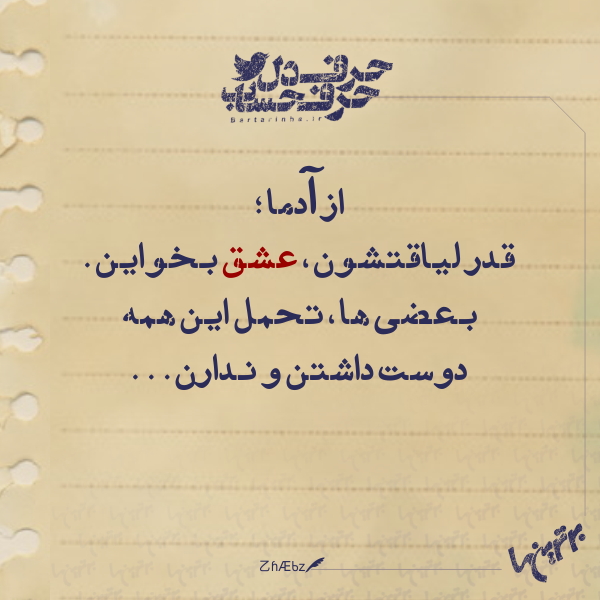 حرف دل
حرف حساب
Bartarinha.ir
از آدما؛
قدر لیاقتشون، عشق بخواین.
بعضی ها، تحمل این همه
دوست داشتن و ندارن...
ZhÆbz
برترین ها